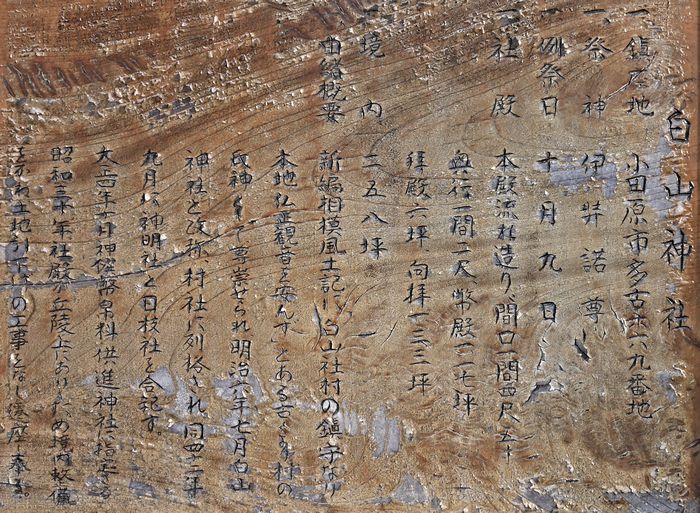 白山神社
一、鎮座地 小田原市多古 六九番地
一、祭神 伊弉諾尊
一、例祭日 十月九日
一、社殿 本殿流れ造り、間口一間四尺五寸
奥行一間二尺 幣殿 二七坪
拝殿六坪 向拝一三三坪
境内 二五八坪
由緒概要 新編相模風土記に「白山社村の鎮守なり
本地仏 観音を安んす」とある古くより村の
氏神として尊崇せられ明治六年七月白山
神社と改称 村社に列格され同四二年
九月に神明社と日枝社を合祀す。
大正四年 月神饌幣帛料供進神社に指定さる
昭和三十年社殿が丘陵上にありため境内整備
土地引下 の工事をなし 座 奉る。